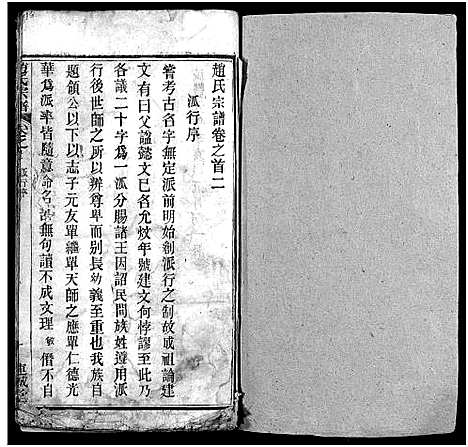 趙氏宗譜卷之首二
派行序
嘗考古名字無定派前明始創派行之制故成祖論建
文有曰父謚懿文巳名允炆年號建文何悖謬至此乃
各議二十字爲一派分賜諸王因詔民間族姓遵用派
行後世師之所以辨尊卑而別長幼義至重也我族自
題領公以下以志子元友單繼單天師之應單仁德光
華爲派率皆隨意命名淩無句讀不成文理 敏 僭不自